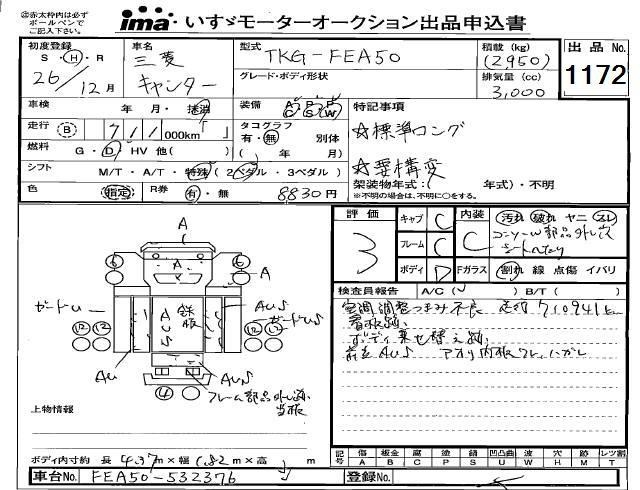 ㊟赤太枠内は必ず
ボールペンで
ご記入下さい。
ima・いすゞモーターオークション出品申込書
初度登録
S・H・R
26/12月
車名
三菱
キャンター
型式
TKG-FEA50
グレード・ボディ形状
積載(kg)
(2,950)
排気量(cc)
3,000
出品No.
1172
車検 年・月・抹消
装備 A/C P/S P/W
特記事項
走行 B 711,000km
タコグラフ
有・無 別体
( 年 月)
☆標準ロング
燃料 G・D・HV 他( )
シフト M/T・A/T・特殊(2ペダル・3ペダル)
☆要構変
架装物年式:( 年式)・不明
※不明の場合は、不明に○をする。
色 指定 R券 有・無 8830円
評価
3
キャブ C
フレーム C
ボディ D
内装
C
汚れ 破れ ヤニ スレ
Fガラス
割れ 線 点傷 イバリ
検査員報告 A/C( ) B/T( )
空調調整つまみ不良 走行710941km
看板跡
ボディ乗せ替え跡
アオリ内板
A
A
A
鉄板
AUS
ガードU
ガードUS
AU
AUS
フレーム部品外し跡
6
6
12
12
12
12
4
上物情報
ボディ内寸 約 長 4.37m × 幅 1.82m × 高 m
記号
傷 A
板金 B
腐 C
塗 P
錆 S
凹凸曲 U
波 W
穴 H
跡 M
レツ割 T
車台No. FEA50-532376
登録No.